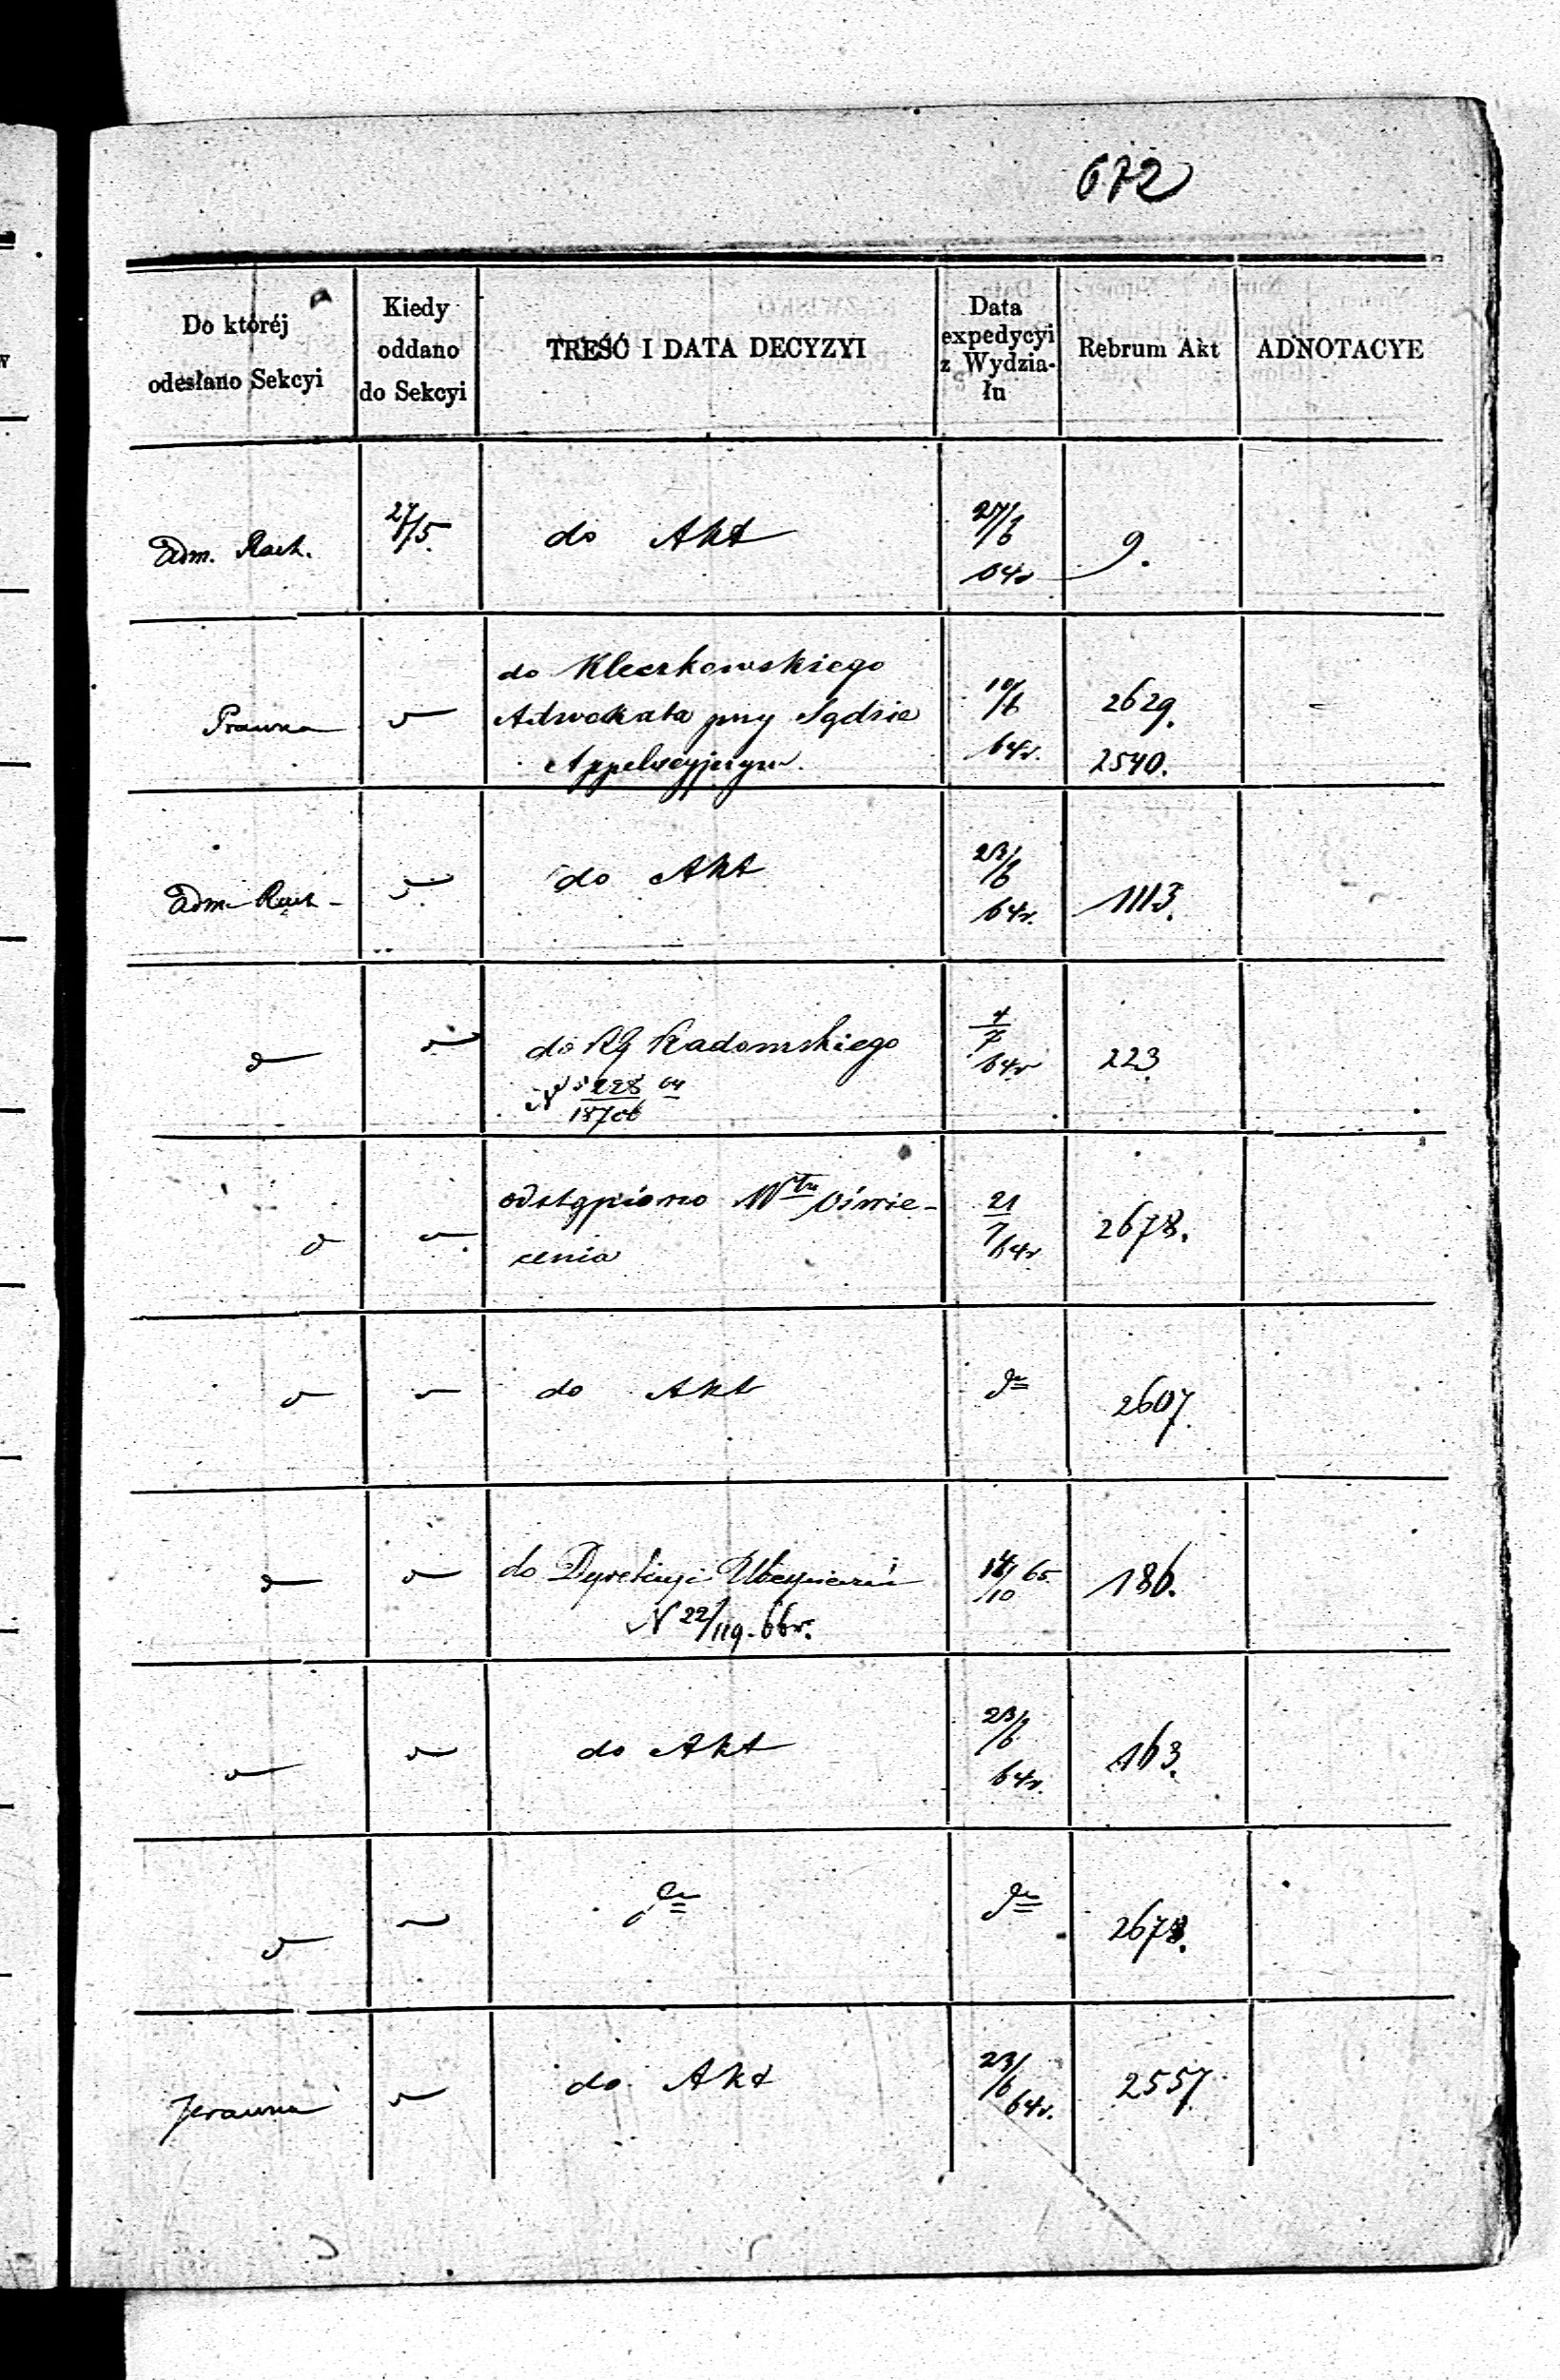 672
Do któréj odesłano Sekcyi | Kiedy oddano do Sekcyi | TREŚĆ I DATA DECYZYI | Data expedycyi z Wydziału | Rebrum Akt | ADNOTACYE
Adm. Rach. | 27/5. | do Akt | 27/6 64r | 9.
Prawna | do Kleczkowskiego Adwokata przy Sądzie Appelacyjnym. | 10/6 64r. | 2629. 2540.
Adm Rach | do Akt | 23/6 64r. | 1113.
do RG Radomskiego N 228/18706 64 | 4/7 64r | 223
odstąpiono Oświecenia | 21/7 64r | 2678.
do Akt | d⁰ | 2607.
do Dyrekcyi Ubezpieczeń N 22/119. 66r. | /10 65 | 186.
do Akt | 23/6 64r. | 163.
d⁰ | d⁰ | 2678.
Prawna | do Akt | 23/6 64r. | 2557